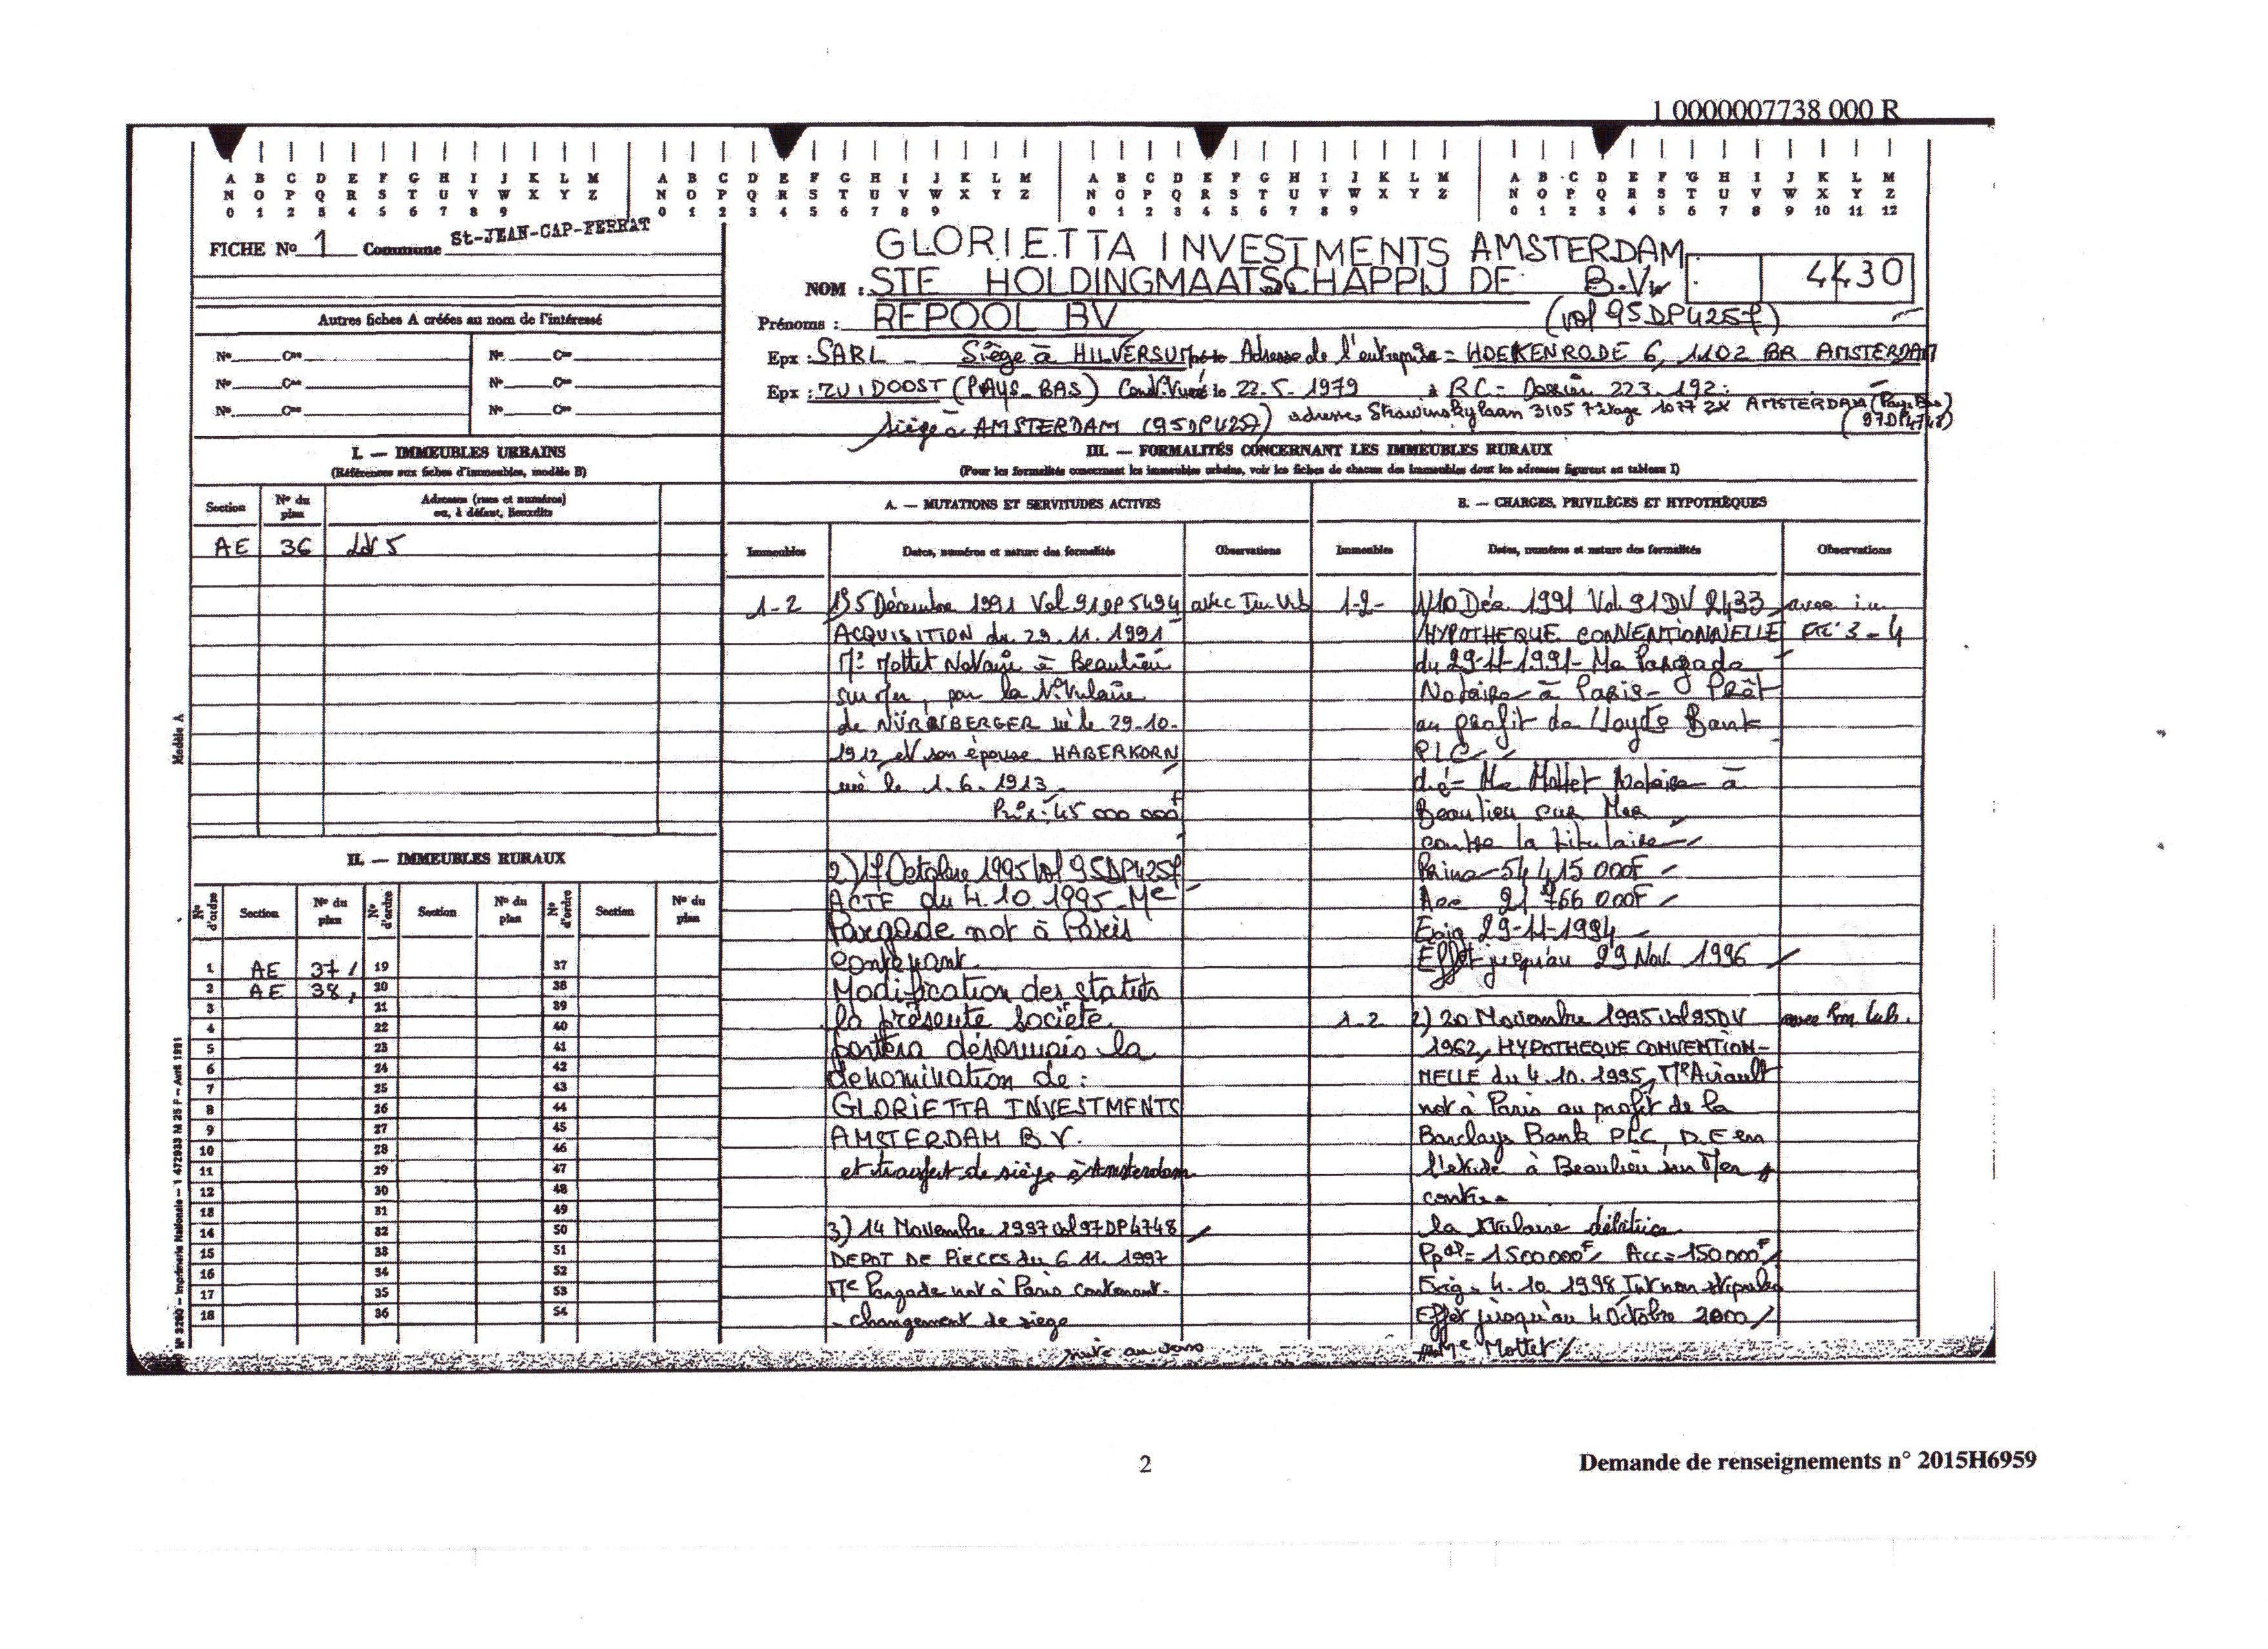 1 0000007738 000 R
A B C D E F G H I J K L M A B C D E F G H I J K L M A B C D E F G H I J K L M A B C D E F G H I J K L M
N O P Q R S T U V W X Y Z N O P Q R S T U V W X Y Z N O P Q R S T U V W X Y Z N O P Q R S T U V W X Y Z
0 1 2 3 4 5 6 7 8 9 0 1 2 3 4 5 6 7 8 9 0 1 2 3 4 5 6 7 8 9 0 1 2 3 4 5 6 7 8 9 10 11 12
FICHE No 1 Commune St-JEAN-CAP-FERRAT
GLORIETTA INVESTMENTS AMSTERDAM
NOM : STE HOLDINGMAATSCHAPPIJ DE B.V. 4430
Prénoms : REPOOL BV (vol 95DP4257)
Epx : SARL - Siège à HILVERSUM Adresse de l'entreprise = HOEKENRODE 6, 1102 BR AMSTERDAM
Epx : ZUIDOOST (PAYS-BAS) le 22.5.1979 à RC - Dossier 223.192.
siège à AMSTERDAM (95DP4257) adresse Strawinskylaan 3105 7e étage 1077 ZX AMSTERDAM (Pays Bas)
(97DP4748)
Autres fiches A créées au nom de l'intéressé
No Cne No Cne
No Cne No Cne
No Cne No Cne
I. — IMMEUBLES URBAINS
(Références aux fiches d'immeubles, modèle B)
Section No du plan Adresses (rues et numéros) ou, à défaut, lieuxdits
AE 36
II. — IMMEUBLES RURAUX
No d'ordre Section No du plan No d'ordre Section No du plan No d'ordre Section No du plan
1 AE 37 19 37
2 AE 38 20 38
3 21 39
4 22 40
5 23 41
6 24 42
7 25 43
8 26 44
9 27 45
10 28 46
11 29 47
12 30 48
13 31 49
14 32 50
15 33 51
16 34 52
17 35 53
18 36 54
Modèle A
No 3260 – Imprimerie Nationale – 1 472033 M 25 P – Avril 1991
III. — FORMALITÉS CONCERNANT LES IMMEUBLES RURAUX
(Pour les formalités concernant les immeubles urbains, voir les fiches de chacun des immeubles dont les adresses figurent au tableau I)
A. — MUTATIONS ET SERVITUDES ACTIVES
Immeubles Dates, numéros et nature des formalités Observations
1-2 1) 5 Décembre 1991 Vol 91DP5494 avec Im Urb
ACQUISITION du 29.11.1991
Me Mottet Notaire à Beaulieu
sur Mer, par la titulaire
de NÜRNBERGER né le 29-10-
1912 et son épouse HABERKORN
née le 1.6.1913
Prix : 45 000 000F
2) 17 Octobre 1995 Vol 95DP4257
ACTE du 4.10.1995 Me
Pargade not à Paris
contenant
Modification des statuts
la présente société
portera désormais la
dénomination de :
GLORIETTA INVESTMENTS
AMSTERDAM B.V.
et transfert de siège à Amsterdam
3) 14 Novembre 1997 Vol 97DP4748
DEPOT DE PIECES du 6.11.1997
Me Pargade not à Paris contenant
- changement de siège
suite au verso
B. — CHARGES, PRIVILÈGES ET HYPOTHÈQUES
Immeubles Dates, numéros et nature des formalités Observations
1-2- 1) 10 Déc 1991 Vol 91DV 2433 avec im
HYPOTHEQUE CONVENTIONNELLE 3-4
du 29-11-1991- Me Pargade
Notaire à Paris - Prêt
au profit de Lloyds Bank
PLC
Me Mottet Notaire à
Beaulieu sur Mer
contre la titulaire
Princ 54 415 000F
Acc 21 766 000F
Exig 29-11-1994
Effet jusqu'au 29 Nov. 1996
1-2 2) 20 Novembre 1995 vol 95DV avec Im Urb.
1962, HYPOTHEQUE CONVENTION-
NELLE du 4.10.1995, Me Airault
not à Paris au profit de la
Barclays Bank PLC, D.E en
l'étude à Beaulieu sur Mer
contre
la titulaire débitrice
Ppal = 1500000F Acc = 150.000F
Exig = 4.10.1998 Int non stipulés
Effet jusqu'au 4 Octobre 2000
Me Mottet
2
Demande de renseignements n° 2015H6959